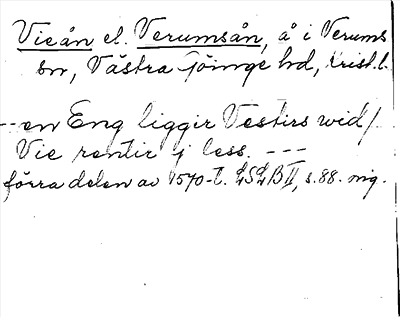 Vieån el. Verumsån, å i Verums
sn, Västra Göinge hd, Krist. l.
--- en Eng liggir Vestirs wid /
Vie rentir j less. ---
förra delen av 1570-t. LSLB II, s. 88. mig.